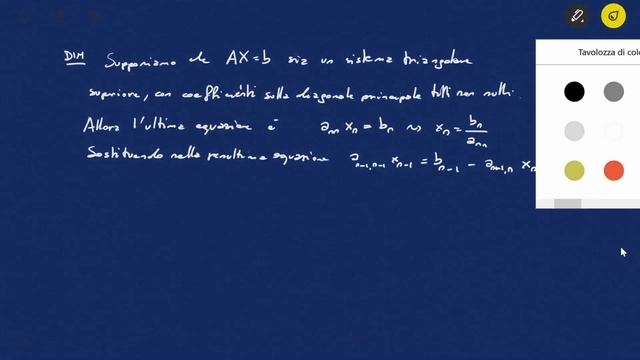 DIM Supponiamo che AX=b sia un sistema triangolare
superiore, con coefficienti sulla diagonale principale tutti non nulli.
Allora l'ultima equazione è a_{nn} x_n = b_n ⇝ x_n = b_n / a_{nn}
Sostituendo nella penultima equazione a_{n-1,n-1} x_{n-1} = b_{n-1} - a_{n-1,n} x_n
Tavolozza di colo